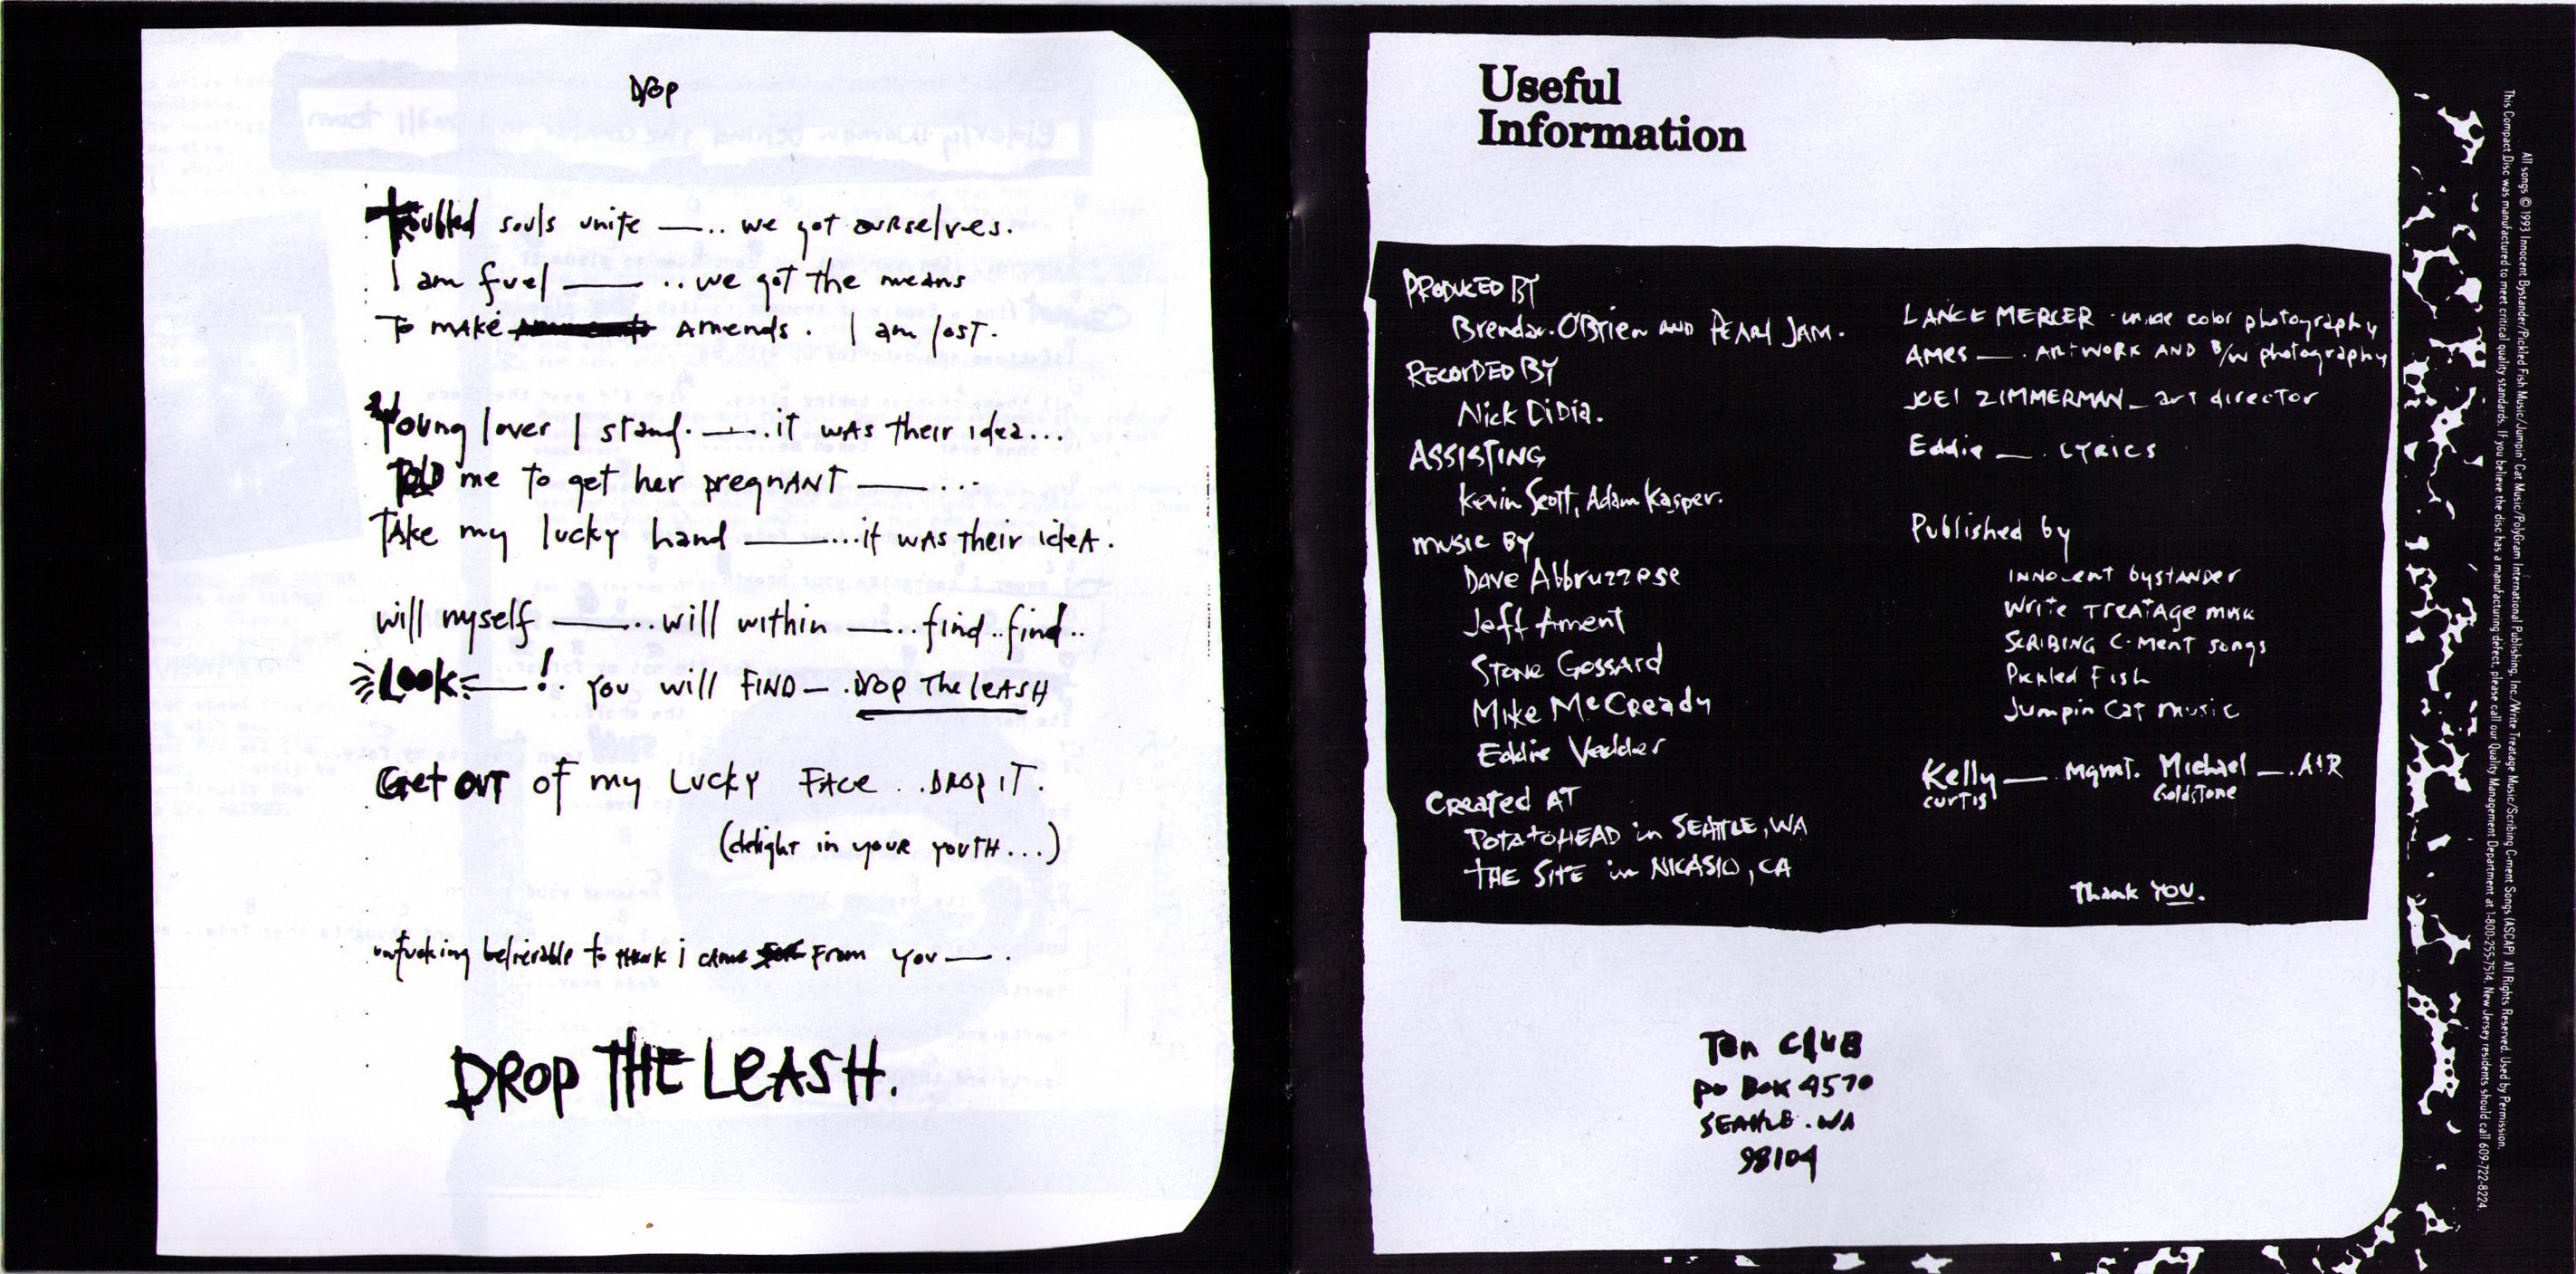 Drop
troubled souls unite —.. we got ourselves.
I am fuel —— ..we got the means
To make amends. I am lost.
Young lover I stand. —..it was their idea...
Told me to get her pregnant —— ...
Take my lucky hand ——...it was their idea.
will myself ——..will within —..find..find..
Look —! . you will FIND — .Drop The leash
Get out of my Lucky Face ..Drop it.
(delight in your youth...)
unfucking believable to think i came from you — .
DROP THE LEASH.
Useful
Information
Produced By
Brendan.O'Brien and Pearl Jam.
Recorded By
Nick DiDia.
Assisting
Kevin Scott, Adam Kasper.
music By
Dave Abbruzzese
Jeff Ament
Stone Gossard
Mike McCready
Eddie Vedder
Created AT
Potatohead in Seattle, WA
The Site in Nicasio, CA
LANCE MERCER - inside color photography
AMES — . Artwork AND B/W photography
JOEL ZIMMERMAN — art director
Eddie — . LYRICS
Published by
innocent bystander
Write Treatage musik
Scribing C-ment songs
Pickled Fish
Jumpin Cat music
Kelly — . Mgmt. Michael — . A&R
Curtis Goldstone
Thank YOU.
Ten Club
PO Box 4570
SEATTLE. WA
98104
All songs © 1993 Innocent Bystander/Pickled Fish Music/Jumpin' Cat Music/PolyGram International Publishing, Inc./Write Treatage Music/Scribing C-ment Songs (ASCAP) All Rights Reserved. Used by Permission.
This Compact Disc was manufactured to meet critical quality standards. If you believe the disc has a manufacturing defect, please call our Quality Management Department at 1-800-255-7514. New Jersey residents should call 609-722-8224.